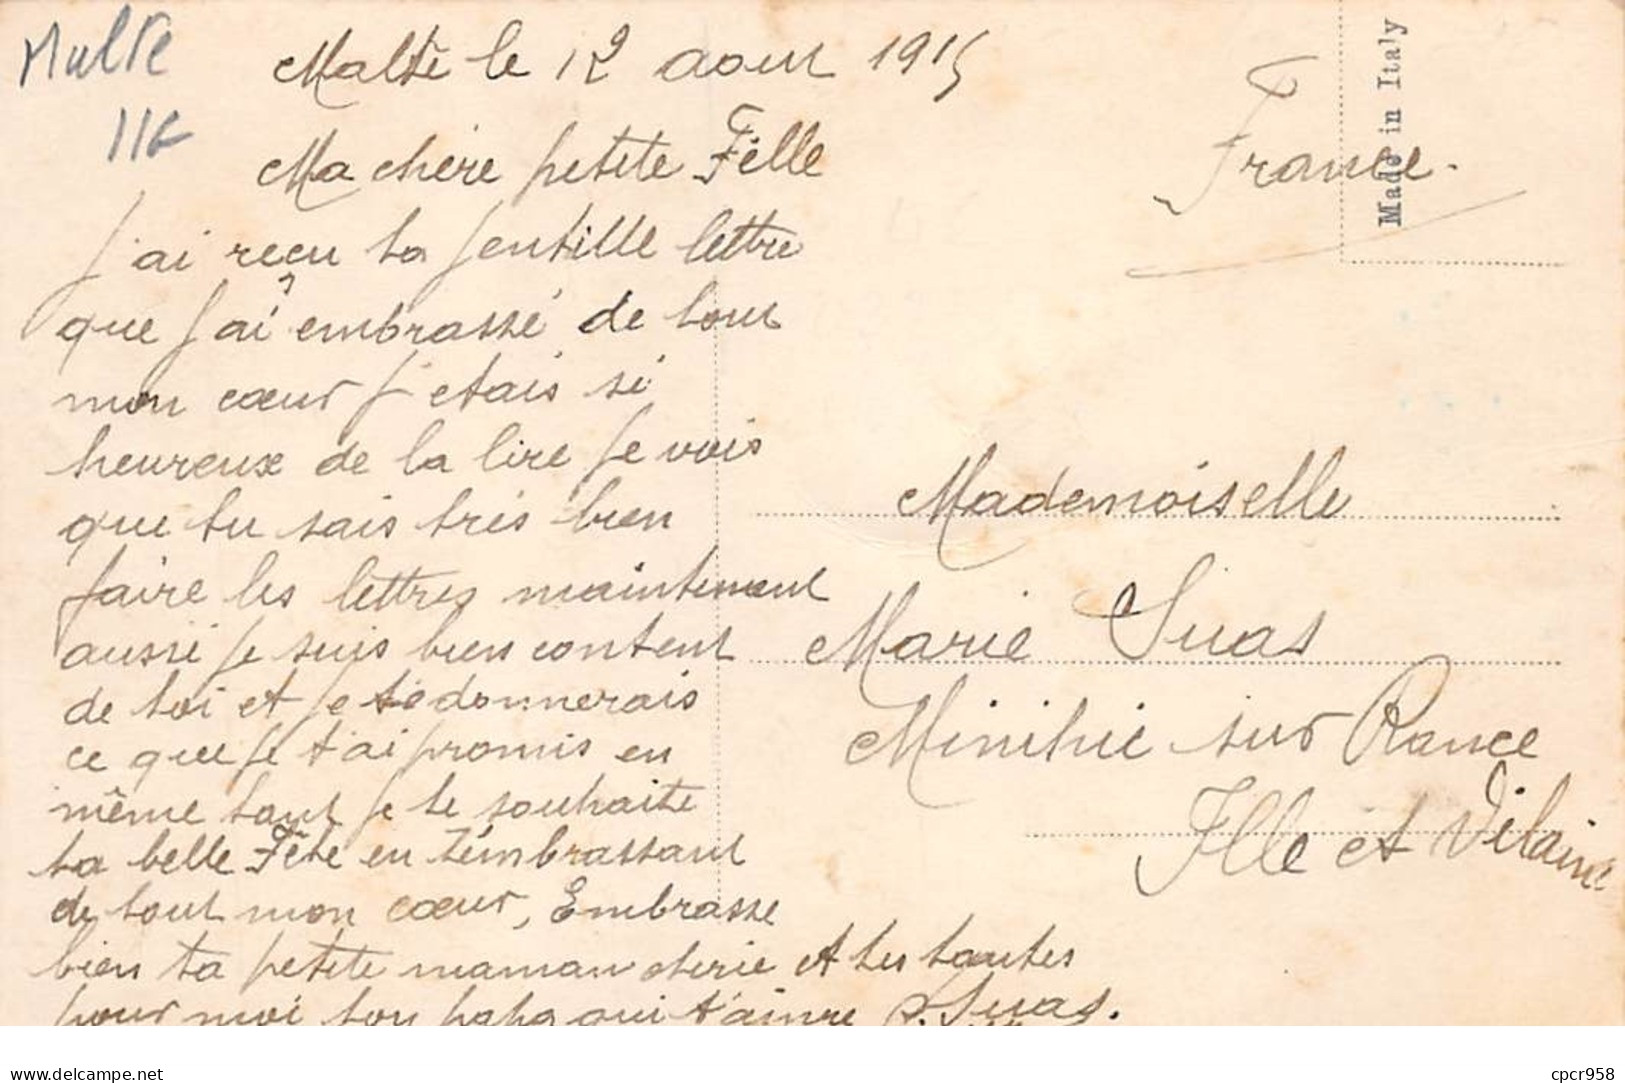 Malte
Malte le 12 aout 1915
Ma chère petite Fille
j'ai reçu ta jentille lettre
que j'ai embrassé de tout
mon cœur j'etais si
heureux de la lire je vois
que tu sais très bien
faire les lettres maintenant
aussi je suis bien content
de toi et je te donnerais
ce que je t'ai promis en
même tant je te souhaite
ta belle Fête en t'embrassant
de tout mon cœur, Embrasse
bien ta petite maman cherie et tes tantes
pour moi ton papa qui t'aime P. Suas.
France.
Made in Italy
Mademoiselle
Marie Suas
Minihic sur Rance
Ille et Vilaine
www.delcampe.net
cpcr958